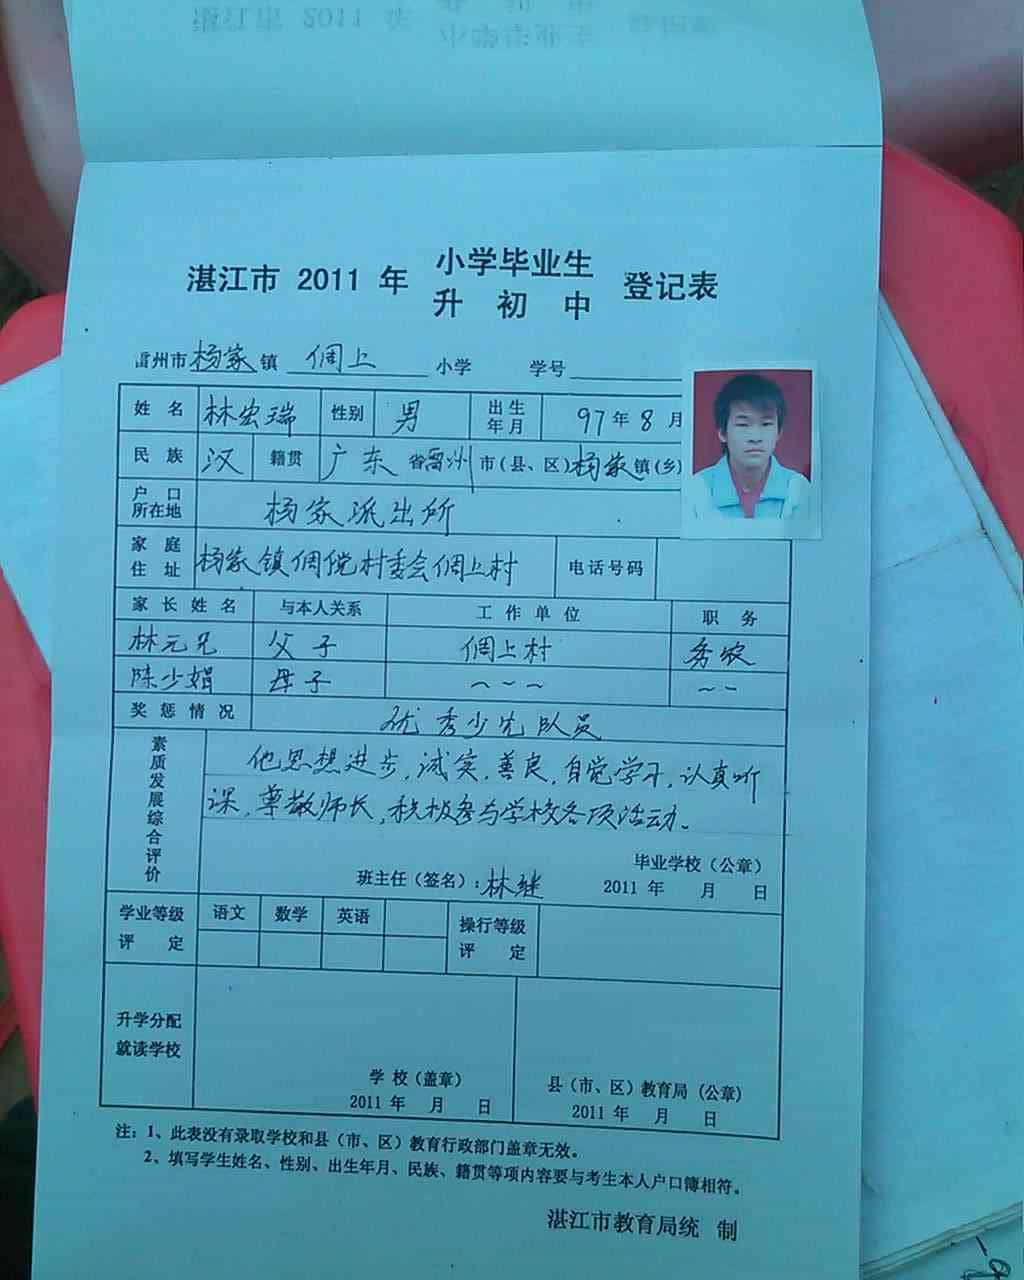 湛江市 2011 年 小学毕业生 登记表
升 初 中
雷州市杨家镇 倜上 小学 学号
姓 名 林宏瑞 性别 男 出生年月 97年8月
民 族 汉 籍贯 广东省雷州市(县、区)杨家镇(乡)
户 口 所在地 杨家派出所
家 庭 住 址 杨家镇倜傥村委会倜上村 电话号码
家 长 姓 名 与本人关系 工 作 单 位 职 务
林元兄 父子 倜上村 务农
陈少娟 母子 ~ ~ ~ ~ ~
奖 惩 情 况 优秀少先队员
素质发展综合评价
他思想进步,诚实,善良,自觉学习,认真听
课,尊敬师长,积极参与学校各项活动。
毕业学校(公章)
班主任(签名):林继 2011 年 月 日
学业等级 评 定 语文 数学 英语 操行等级 评 定
升学分配 就读学校
学 校(盖章) 县(市、区)教育局(公章)
2011 年 月 日 2011 年 月 日
注:1、此表没有录取学校和县(市、区)教育行政部门盖章无效。
2、填写学生姓名、性别、出生年月、民族、籍贯等项内容要与考生本人户口簿相符。
湛江市教育局统 制